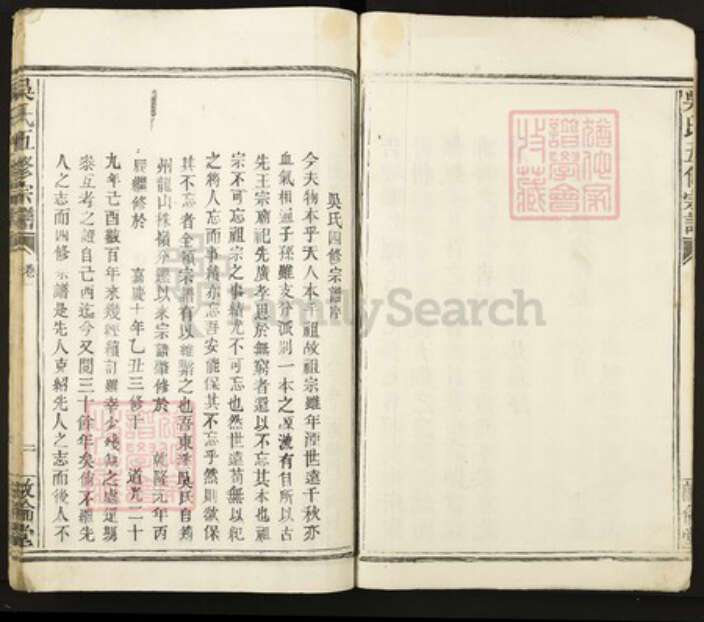 吳氏四修宗譜序
今夫物本乎天人本乎祖故祖宗雖年湮世遠千秋亦
血氣相通子孫雖支分派別一本之源流有自所以古
先王宗廟祀先廣孝思於無窮者還以不忘其本也顧
宗不可忘祖宗之事績尤不可忘也然世遠苟無以紀
之將人忘而事績亦忘吾安能保其不忘乎然則欲保
其不忘者全賴宗譜有以維繫之也吾東 吳氏自
州龍山株嶺 以來宗譜肇修於 乾隆元年丙
辰繼修於 嘉慶十年乙丑三修于 道光二十
九年己酉數百年來幾經續訂 之處
崇互考之證自己酉迄今又閱三十餘年矣倘不繼先
人之志而四修宗譜是先人克紹先人之志而後人不
吳氏五修宗譜
卷
二
敘倫堂
吳氏五修宗譜
敘倫堂
譜學會
收藏
FamilySearch